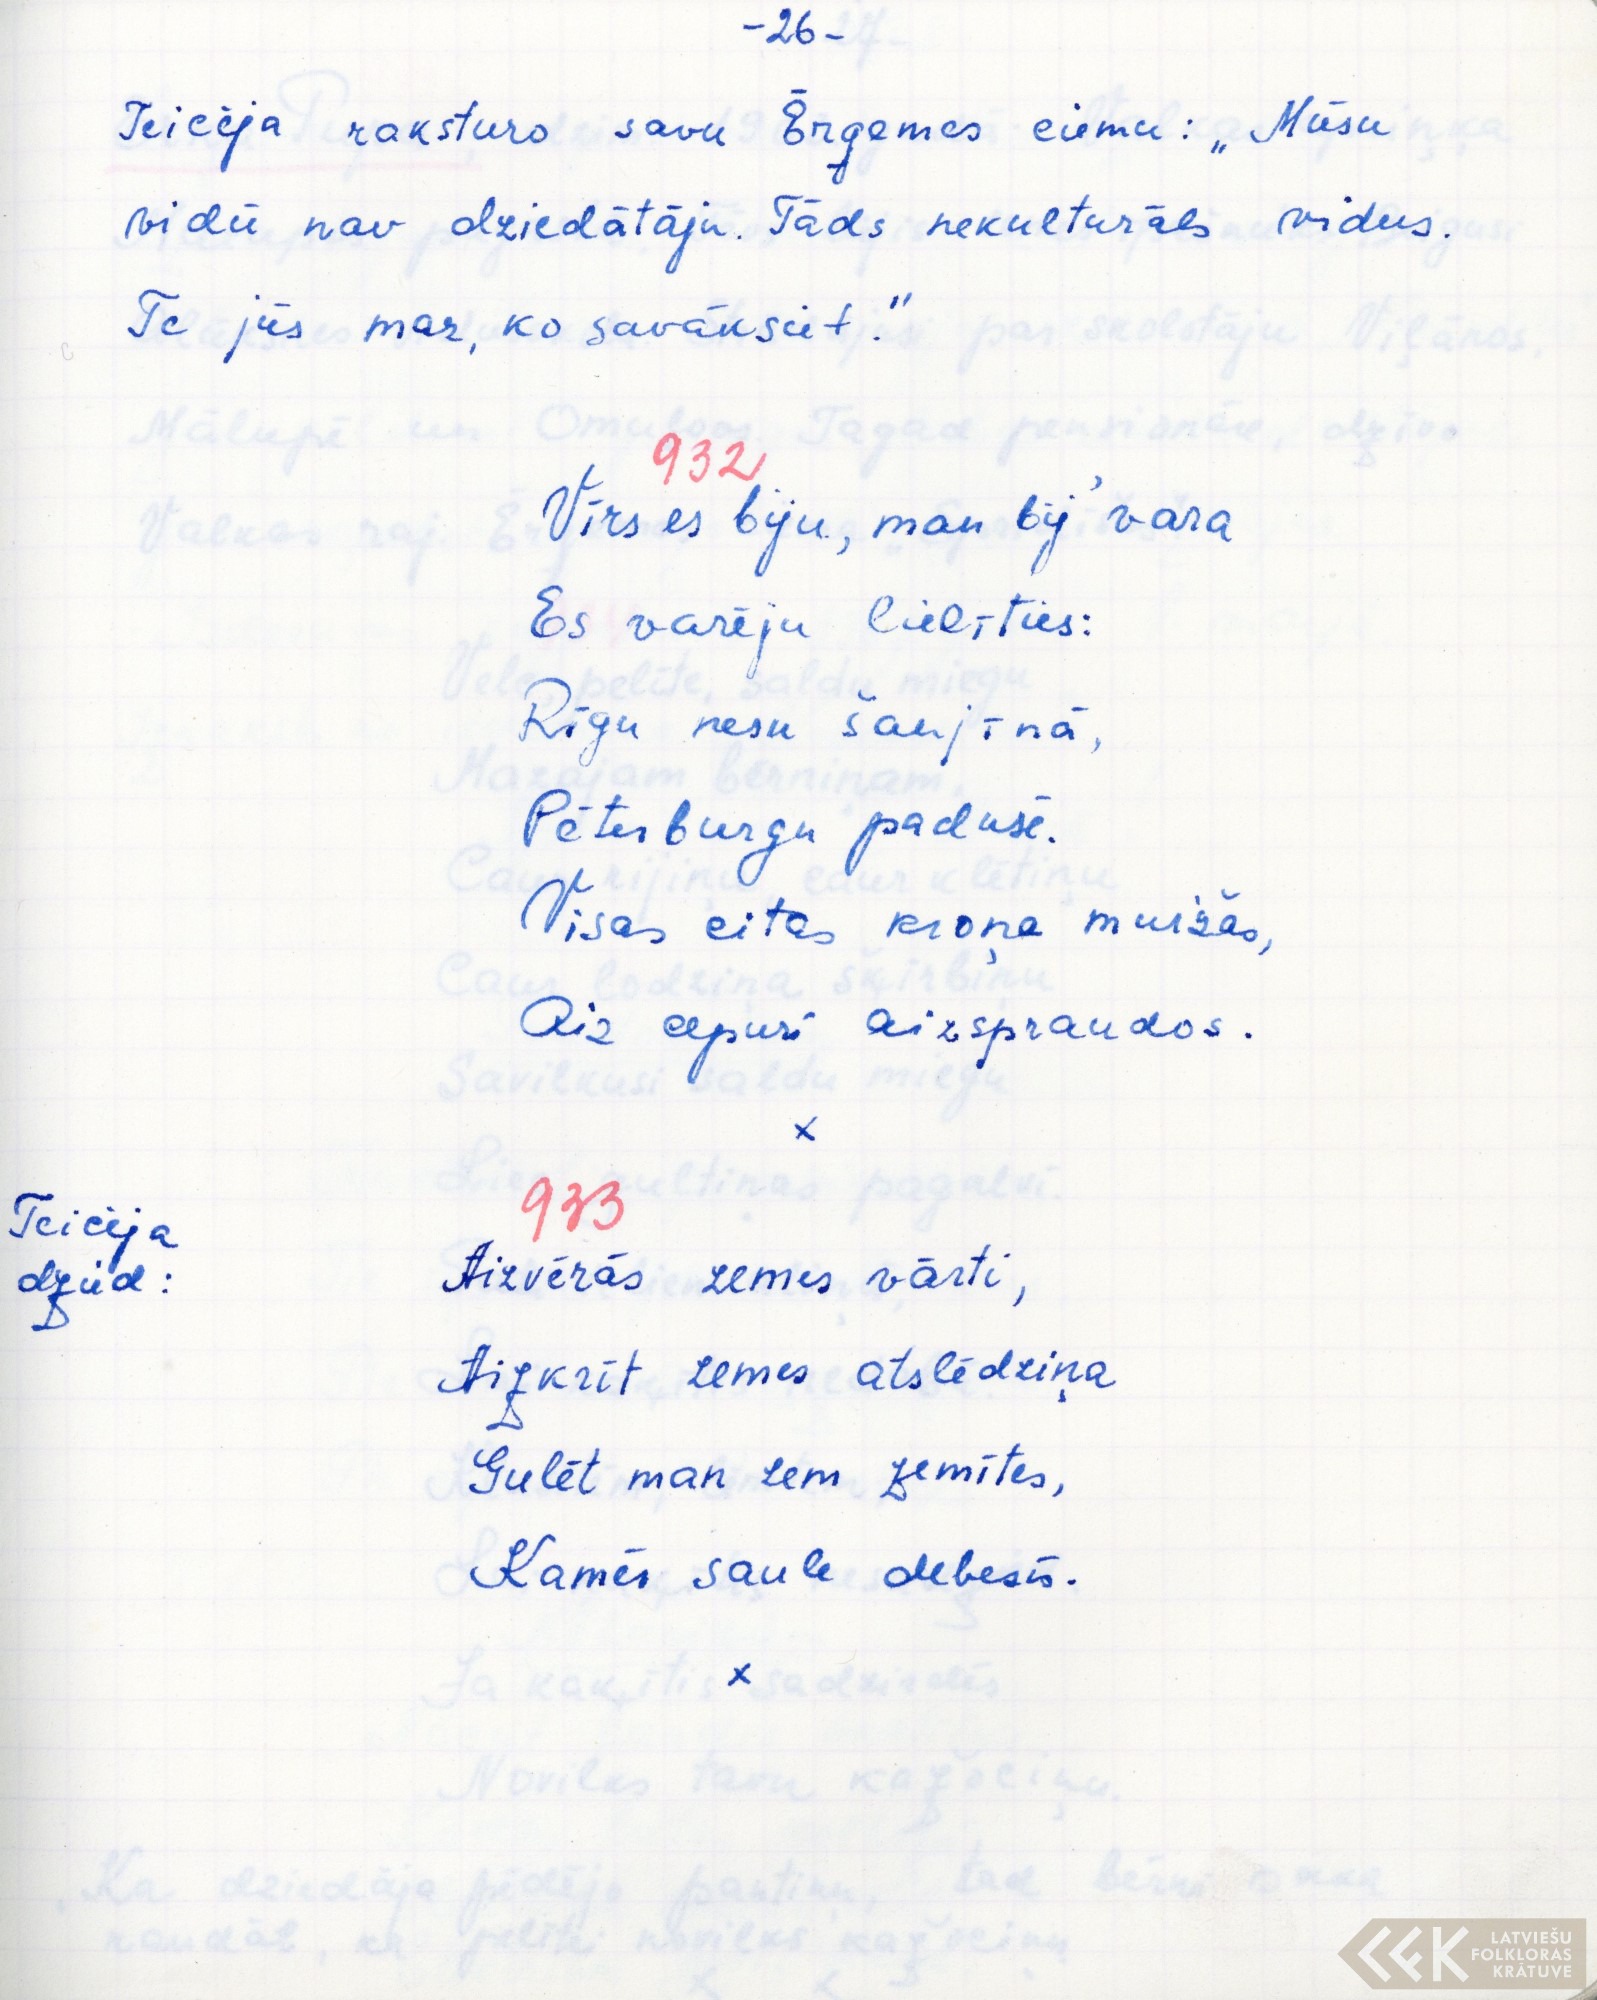 -26-
Teicēja raksturo savu Ērģemes ciemu: „Mūsu
vidū nav dziedātāju. Tāds nekulturāls vidus.
Te jūs maz, ko savāksiet."
932
Vīrs es biju, man bij' vara
Es varēju lielīties:
Rīgu nesu šaujīnā,
Pēterburgu padusē.
Visas citas kroņa muižas,
Aiz cepuri aizspraudos.
x
933
Teicēja
dzied:
Aizvērās zemes vārti,
Aizkrīt zemes atslēdziņa
Gulēt man zem zemītes,
Kamēr saule debesīs.
x
LATVIEŠU
FOLKLORAS
KRĀTUVE